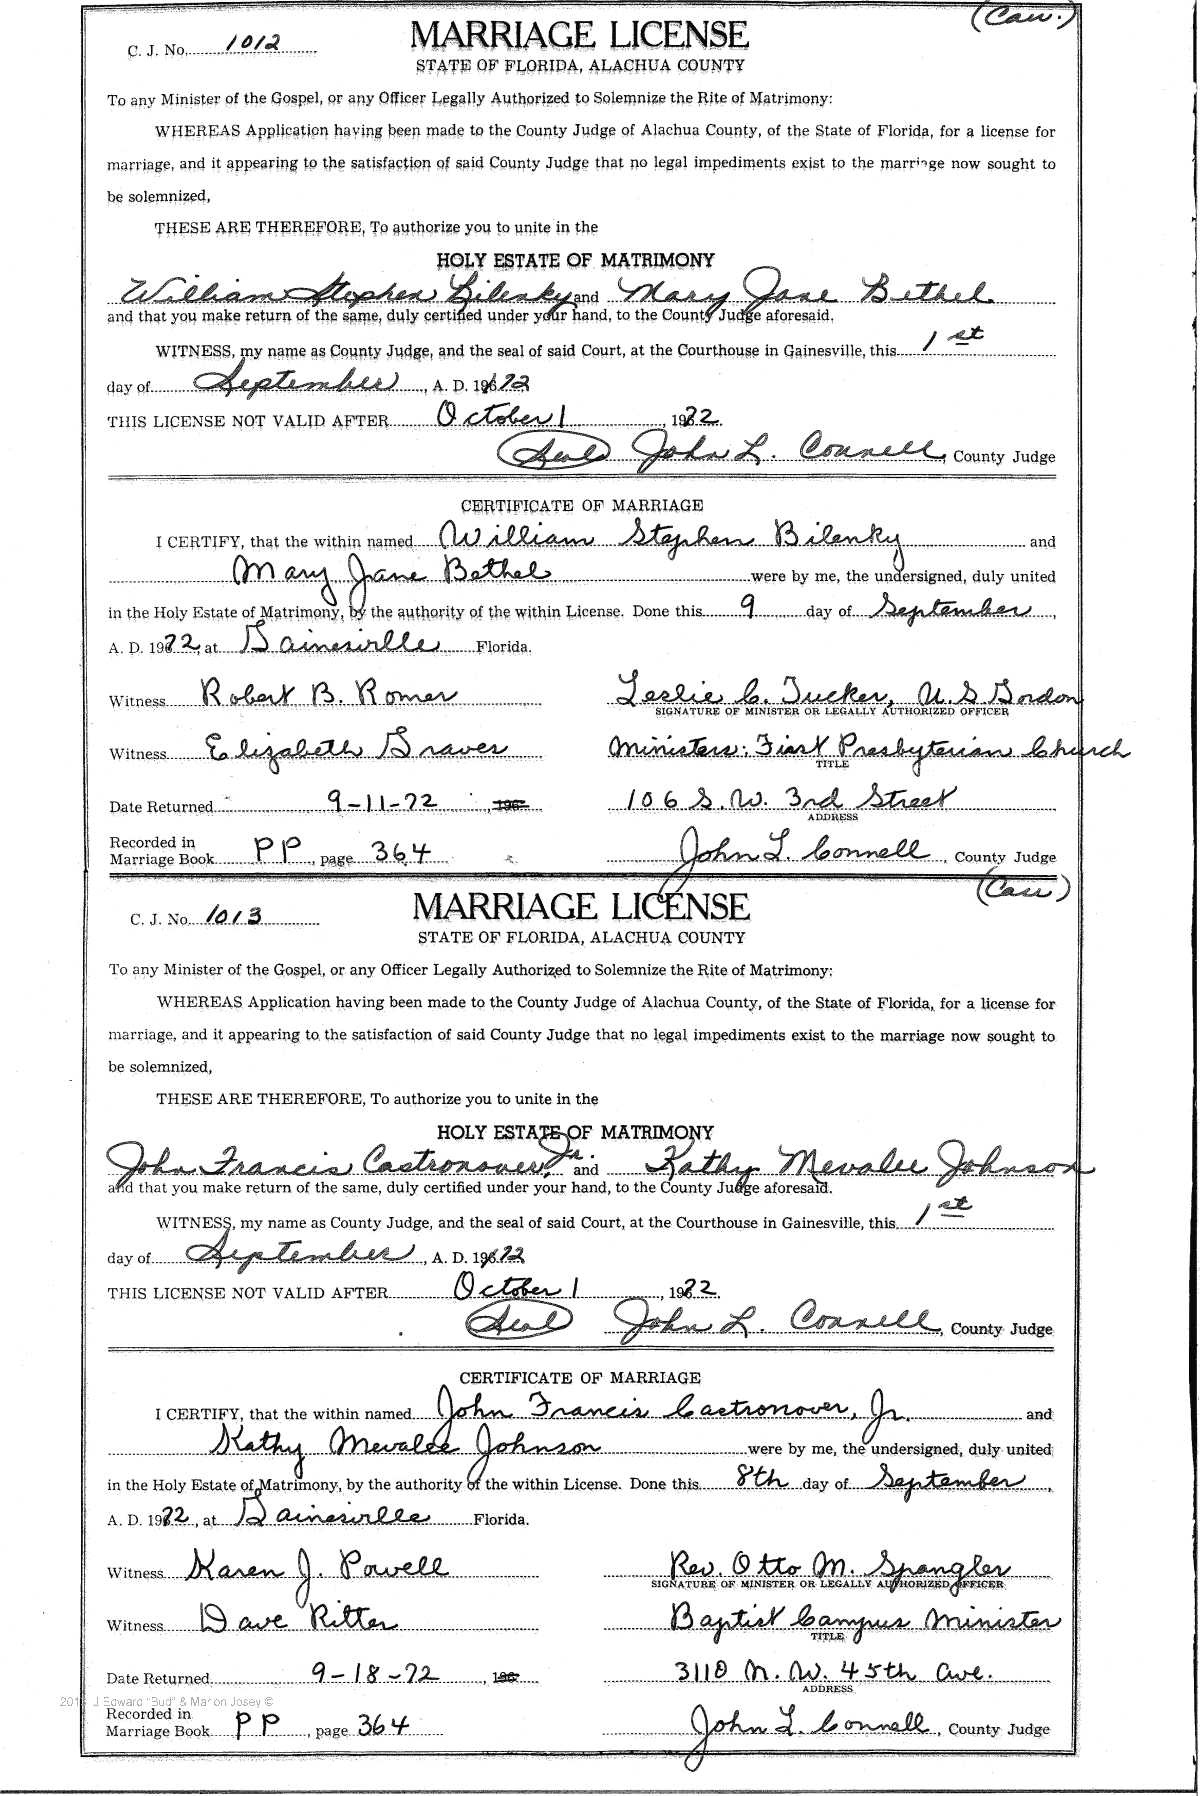 (Cau.)
C. J. No. 1012
MARRIAGE LICENSE
STATE OF FLORIDA, ALACHUA COUNTY
To any Minister of the Gospel, or any Officer Legally Authorized to Solemnize the Rite of Matrimony:
WHEREAS Application having been made to the County Judge of Alachua County, of the State of Florida, for a license for
marriage, and it appearing to the satisfaction of said County Judge that no legal impediments exist to the marriage now sought to
be solemnized,
THESE ARE THEREFORE, To authorize you to unite in the
HOLY ESTATE OF MATRIMONY
William Stephen Bilenky and Mary Jane Bethel
and that you make return of the same, duly certified under your hand, to the County Judge aforesaid.
WITNESS, my name as County Judge, and the seal of said Court, at the Courthouse in Gainesville, this 1st
day of September, A. D. 1972
THIS LICENSE NOT VALID AFTER October 1, 1972.
(Seal) John L. Connell, County Judge
CERTIFICATE OF MARRIAGE
I CERTIFY, that the within named William Stephen Bilenky and
Mary Jane Bethel were by me, the undersigned, duly united
in the Holy Estate of Matrimony, by the authority of the within License. Done this 9 day of September,
A. D. 1972, at Gainesville Florida.
Witness Robert B. Romer Leslie C. Tucker, U.S. Gordon
SIGNATURE OF MINISTER OR LEGALLY AUTHORIZED OFFICER
Witness Elizabeth Graves Ministers: First Presbyterian Church
TITLE
Date Returned 9-11-72, 196 106 S.W. 3rd Street
ADDRESS
Recorded in
Marriage Book PP, page 364 John L. Connell, County Judge
(Cau)
C. J. No. 1013
MARRIAGE LICENSE
STATE OF FLORIDA, ALACHUA COUNTY
To any Minister of the Gospel, or any Officer Legally Authorized to Solemnize the Rite of Matrimony:
WHEREAS Application having been made to the County Judge of Alachua County, of the State of Florida, for a license for
marriage, and it appearing to the satisfaction of said County Judge that no legal impediments exist to the marriage now sought to
be solemnized,
THESE ARE THEREFORE, To authorize you to unite in the
HOLY ESTATE OF MATRIMONY
John Francis Castronover, Jr. and Kathy Mevalee Johnson
and that you make return of the same, duly certified under your hand, to the County Judge aforesaid.
WITNESS, my name as County Judge, and the seal of said Court, at the Courthouse in Gainesville, this 1st
day of September, A. D. 1972
THIS LICENSE NOT VALID AFTER October 1, 1972.
(Seal) John L. Connell, County Judge
CERTIFICATE OF MARRIAGE
I CERTIFY, that the within named John Francis Castronover, Jr. and
Kathy Mevalee Johnson were by me, the undersigned, duly united
in the Holy Estate of Matrimony, by the authority of the within License. Done this 8th day of September,
A. D. 1972, at Gainesville Florida.
Witness Karen J. Powell Rev. Otto M. Spangler
SIGNATURE OF MINISTER OR LEGALLY AUTHORIZED OFFICER
Witness Dave Ritter Baptist Campus Minister
TITLE
Date Returned 9-18-72, 196 3110 N.W. 45th Ave.
ADDRESS
J Edward "Bud" & Marion Josey ©
Recorded in
Marriage Book PP, page 364 John L. Connell, County Judge